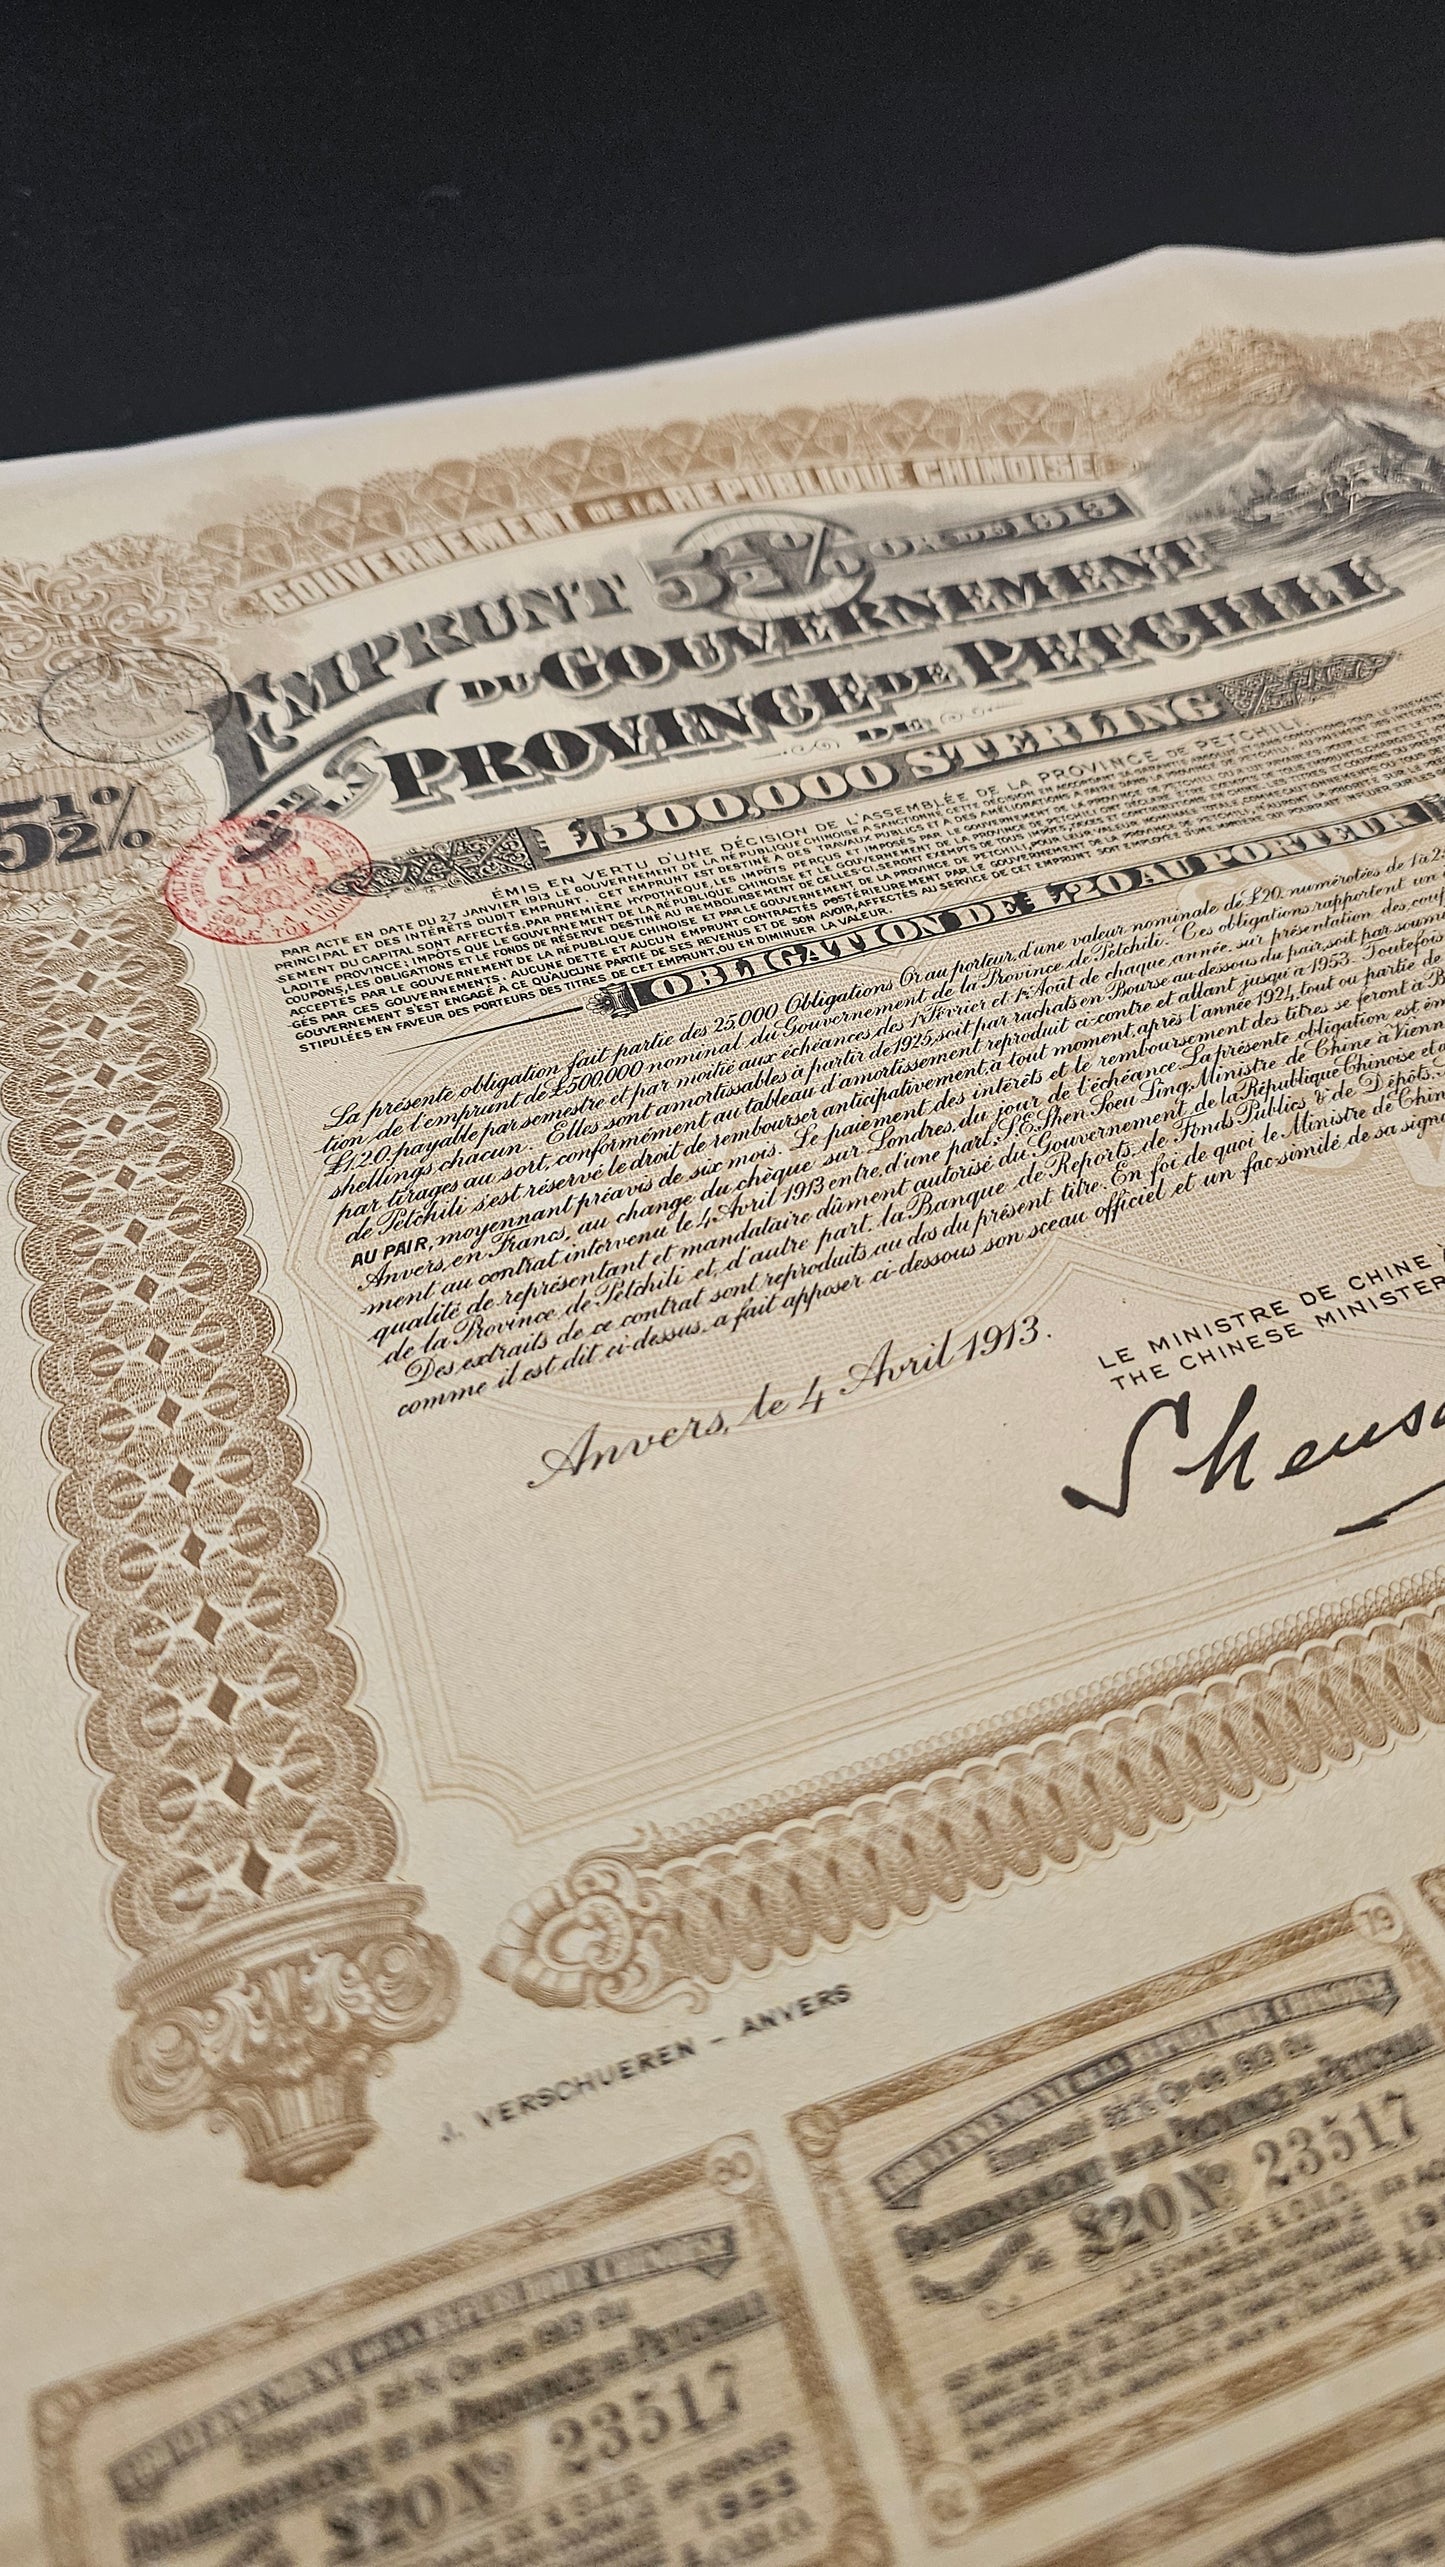 GOUVERNEMENT DE LA REPUBLIQUE CHINOISE
EMPRUNT 5½% OR DE 1913
DU GOUVERNEMENT
DE LA PROVINCE DE PETCHILI
DE
£500,000 STERLING
5½%
ÉMIS EN VERTU D'UNE DÉCISION DE L'ASSEMBLÉE DE LA PROVINCE DE PETCHILI.
PAR ACTE EN DATE DU 27 JANVIER 1913, LE GOUVERNEMENT DE LA RÉPUBLIQUE CHINOISE A SANCTIONNÉ CETTE DÉCISION EN ACCORDANT SA GARANTIE ABSOLUE ET SANS CONDITIONS POUR LE PAIEMENT
PRINCIPAL ET DES INTÉRÊTS DUDIT EMPRUNT. CET EMPRUNT EST DESTINÉ A DES TRAVAUX PUBLICS ET A DES AMÉLIORATIONS A FAIRE DANS LA PROVINCE DE PETCHILI. AU PAIEMENT DES INTÉRÊTS
SEMENT DU CAPITAL SONT AFFECTÉS, PAR PREMIÈRE HYPOTHÈQUE, LES IMPÔTS PERÇUS ET IMPOSÉS PAR LE GOUVERNEMENT DE LA PROVINCE DE PETCHILI
LADITE PROVINCE; IMPÔTS QUE LE GOUVERNEMENT DE LA RÉPUBLIQUE CHINOISE ET LE GOUVERNEMENT DE LA PROVINCE DE PETCHILI ONT DÉCLARÉ
COUPONS, LES OBLIGATIONS ET LE FONDS DE RÉSERVE DESTINÉ AU REMBOURSEMENT DE CELLES-CI, SERONT EXEMPTS DE TOUS IMPÔTS, TAXES ET CONTRIBUTIONS EN CHINE. LES TITRES ET COUPONS
ACCEPTÉS PAR LE GOUVERNEMENT DE LA RÉPUBLIQUE CHINOISE ET PAR LE GOUVERNEMENT DE LA PROVINCE DE PETCHILI, POUR LEUR VALEUR NOMINALE TOTALE, COMME CAUTIONNEMENTS
GÉS PAR CES GOUVERNEMENTS. AUCUNE DETTE ET AUCUN EMPRUNT CONTRACTÉS POSTÉRIEUREMENT PAR LE GOUVERNEMENT DE LA PROVINCE DE PETCHILI N'AURONT LA PRIORITÉ SUR LE
GOUVERNEMENT S'EST ENGAGÉ A CE QU'AUCUNE PARTIE DE SES REVENUS ET DE SON AVOIR, AFFECTÉS AU SERVICE DE CET EMPRUNT SOIT EMPLOYÉE D'UNE MANIÈRE QUI POURRAIT INFLUER SUR
STIPULÉES EN FAVEUR DES PORTEURS DES TITRES DE CET EMPRUNT, OU EN DIMINUER LA VALEUR.
OBLIGATION DE £20 AU PORTEUR
La présente obligation fait partie des 25,000 Obligations Or au porteur, d'une valeur nominale de £20. numérotées de 1 à 25
tion de l'emprunt de £500.000 nominal du Gouvernement de la Province de Petchili. Ces obligations rapportent un
£1.2.0. payable par semestre et par moitié aux échéances des 1r Février et 1r Août de chaque année, sur présentation des coup
shellings chacun. Elles sont amortissables à partir de 1925, soit par rachats en Bourse au-dessous du pair, soit par soum
par tirages au sort, conformément au tableau d'amortissement reproduit ci-contre et allant jusqu'à 1953. Toutefois
de Petchili s'est réservé le droit de rembourser anticipativement, à tout moment, après l'année 1924, tout ou partie de
AU PAIR, moyennant préavis de six mois. Le paiement des intérêts et le remboursement des titres se feront à B
Anvers, en Francs, au change du chèque sur Londres, du jour de l'échéance. La présente obligation est ém
ment au contrat intervenu le 4 Avril 1913 entre, d'une part, S.E. Shen Soeu Ling, Ministre de Chine à Vienn
qualité de représentant et mandataire dûment autorisé du Gouvernement de la République Chinoise et
de la Province de Petchili et, d'autre part, la Banque de Reports, de Fonds Publics & de Dépôts.
Des extraits de ce contrat sont reproduits au dos du présent titre. En foi de quoi le Ministre de Chin
comme il est dit ci-dessus, a fait apposer ci-dessous son sceau officiel et un fac-similé de sa signa
Anvers, le 4 Avril 1913.
LE MINISTRE DE CHINE
THE CHINESE MINISTER
Shenso
J. VERSCHUEREN - ANVERS
79
£20 No 23517
80
£20 No 23517